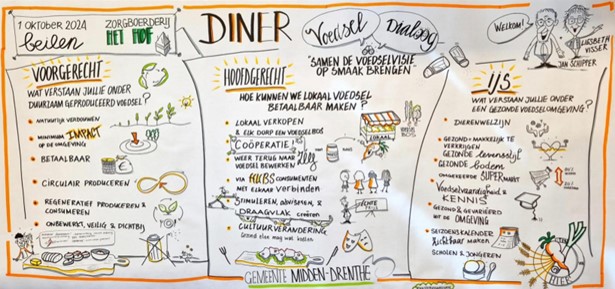 1 OKTOBER 2024
beilen
ZORGBOERDERIJ
HET HOF
DINER
Voedsel
Dialoog
"SAMEN DE VOEDSELVISIE
OP SMAAK BRENGEN"
WELKOM!
LIESBETH
VISSER
JAN SCHIPPER
VOORGERECHT
WAT VERSTAAN JULLIE ONDER
DUURZAAM GEPRODUCEERD VOEDSEL?
NATUURLIJK VERBOUWEN
MINIMALE IMPACT
OP DE OMGEVING
BETAALBAAR
CIRCULAIR PRODUCEREN
REGENERATIEF PRODUCEREN &
CONSUMEREN
ONBEWERKT, VEILIG & DICHTBIJ
HOOFDGERECHT
HOE KUNNEN WE LOKAAL VOEDSEL
BETAALBAAR MAKEN?
LOKAAL VERKOPEN
& ELK DORP EEN VOEDSELBOS
COÖPERATIE!
WEER TERUG NAAR ZELF
VOEDSEL BEWERKEN
VIA HUBS CONSUMENTEN
MET ELKAAR verbinden
STIMULEREN, ADVISEREN, &
DRAAGVLAK creëren
CULTUURVERANDERING
Gezond eten mag wat kosten
LOKAAL
ECHTE
PRIJS
IJS
WAT VERSTAAN JULLIE ONDER
EEN GEZONDE VOEDSELOMGEVING?
DIERENWELZIJN
GEZOND = MAKKELIJK TE
VERKRIJGEN
GEZONDE levensstijl
GEZONDE bodem
OMGEKEERDE SUPERMARKT
Voedselvaardigheid &
KENNIS
GEZOND & GEVARIËERD
UIT DE OMGEVING
SEIZOENSKALENDER
zichtbaar maken
SCHOLEN & JONGEREN
HIER
GEMEENTE MIDDEN-DRENTHE